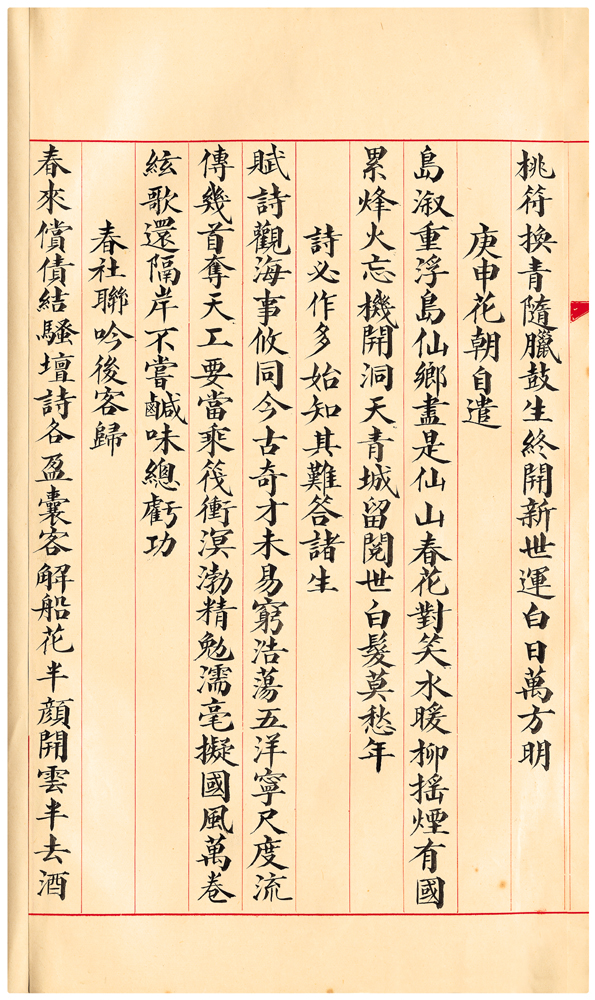 桃符換青隨臘鼓生終開新世運白日萬方明
庚申花朝自遣
島溆重浮島仙鄉盡是仙山春花對笑水暖柳搖煙有國
累烽火忘機開洞天青城留閱世白髮莫愁年
詩必作多始知其難答諸生
賦詩觀海事攸同今古奇才未易窮浩蕩五洋寧尺度流
傳幾首奪天工要當乘筏衝溟渤精勉濡毫擬國風萬卷
絃歌還隔岸不嘗鹹味總虧功
春社聯吟後客歸
春來償債結騷壇詩各盈囊客解船花半顏開雲半去酒